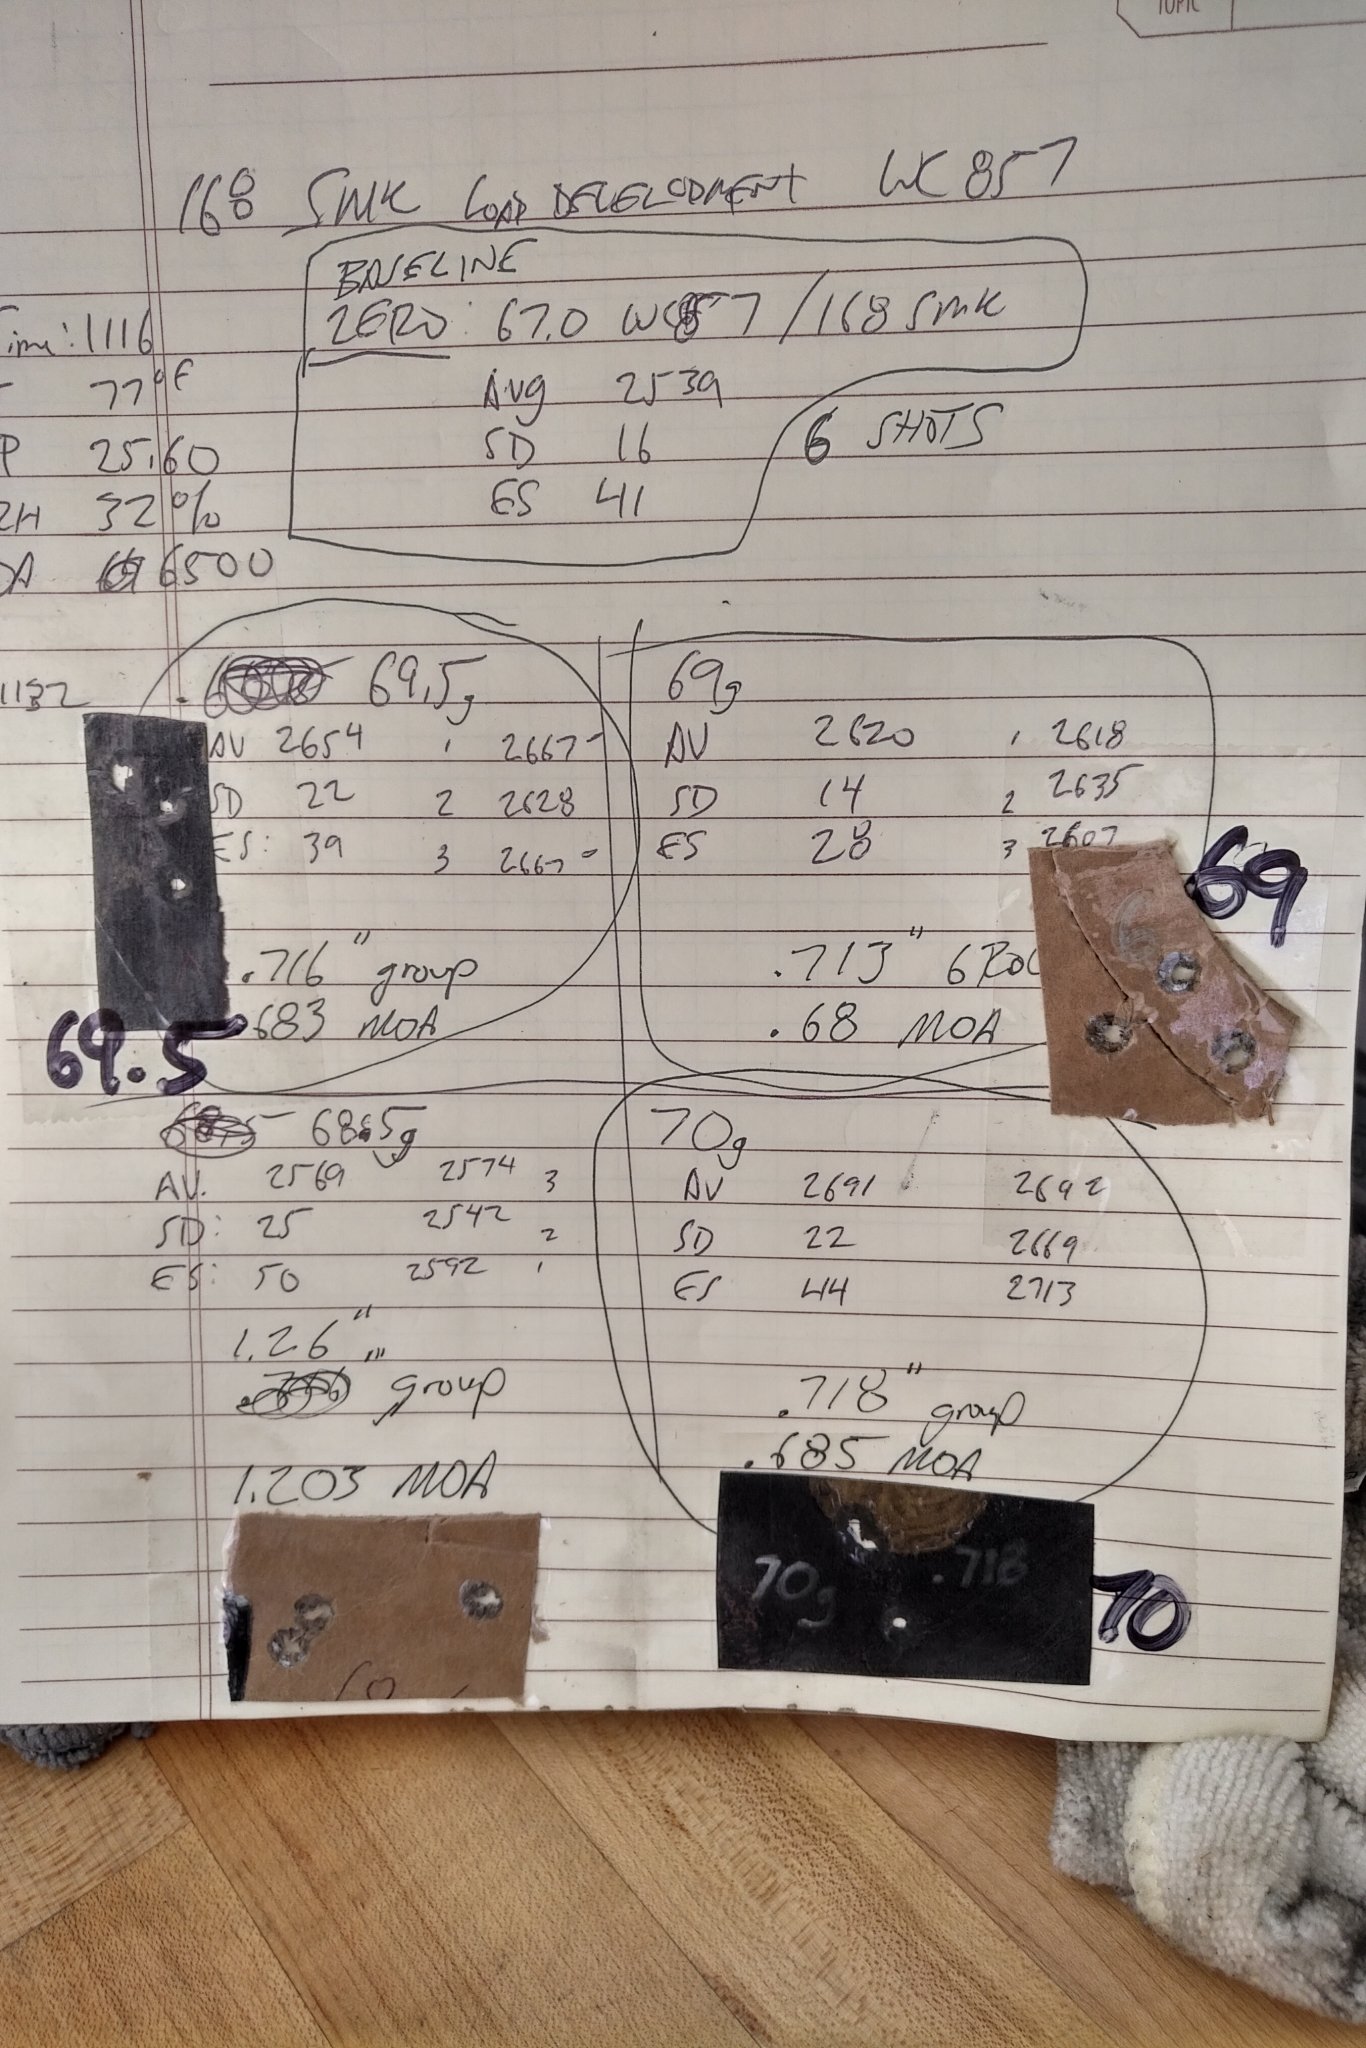 TOPIC
168 SMK LOAD DEVELOPMENT WC 857
BASELINE
ZERO: 67.0 WC857 / 168 SMK
Avg 2539
SD 16
ES 41
6 SHOTS
Time: 1116
77°F
P 25.60
RH 32%
DA 6500
1132
69.5g
AV 2654 1 2667
SD 22 2 2628
ES: 39 3 2667
.716" group
.683 MOA
69.5
69g
AV 2620 1 2618
SD 14 2 2635
ES 28 3 2607
.713" 6
.68 MOA
6
69
68.5g
AV. 2569 2574 3
SD: 25 2542 2
ES: 50 2592 1
1.26"
group
1.203 MOA
70g
AV 2691 2692
SD 22 2669
ES 44 2713
.718" group
.685 MOA
70g .718
70